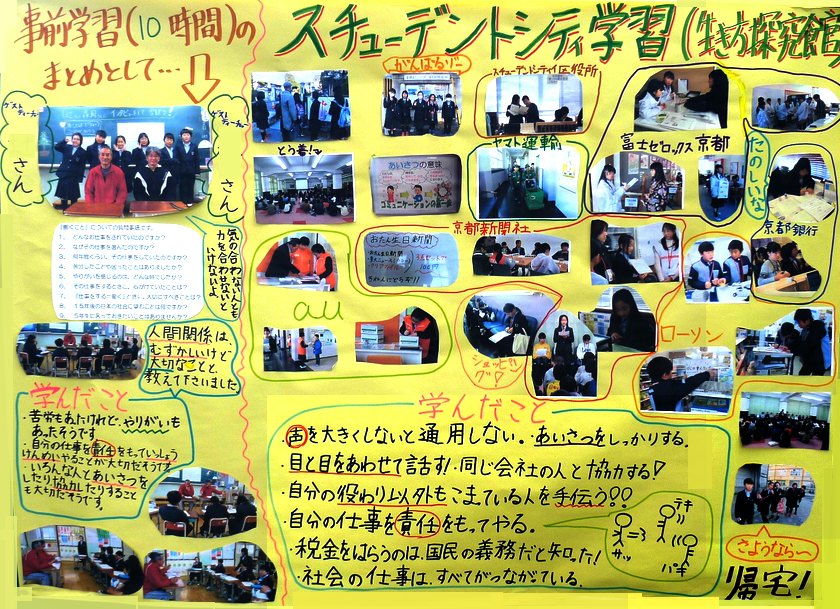 事前学習(10時間)の
まとめとして…
ゲストティーチャー
さん
ゲストティーチャー
さん
「働くこと」についての質問事項です。
1. どんなお仕事をされていたのですか?
2. なぜその仕事を選んだのですか?
3. 何年間くらい、その仕事をしていたのですか?
4. 苦労したことや困ったことはありましたか?
気の合わない人とも
力を合わせないと
いけないよ
人間関係は、
むずかしいけど
大切なことと、
教えて下さいました。
学んだこと
・苦労もあたけれど、やりがいも
あったそうです
・自分の仕事を責任をもっていっしょう
けんめいやることが大切だそうです
・いろんな人とあいさつを
したり協力したりすること
も大切だそうです。
スチューデントシティ学習(生き方探究館)
がんばるゾー
スチューデントシティ区役所
とう着!
あいさつの意味
コミュニケーションの第一歩
ヤマト運輸
富士ゼロックス京都
たのしいな
京都新聞社
おたん生日新聞
京都銀行
au
ショッピング♡
ローソン
学んだこと
・声を大きくしないと通用しない。・あいさつをしっかりする。
・目と目をあわせて話す!・同じ会社の人と協力する!
・自分の役わり以外もこまっている人を手伝う!!
・自分の仕事を責任をもってやる。
・税金をはらうのは、国民の義務だと知った!
・社会の仕事は、すべてがつながっている。
テキ
パキ
サッ
さようなら〜
帰宅!